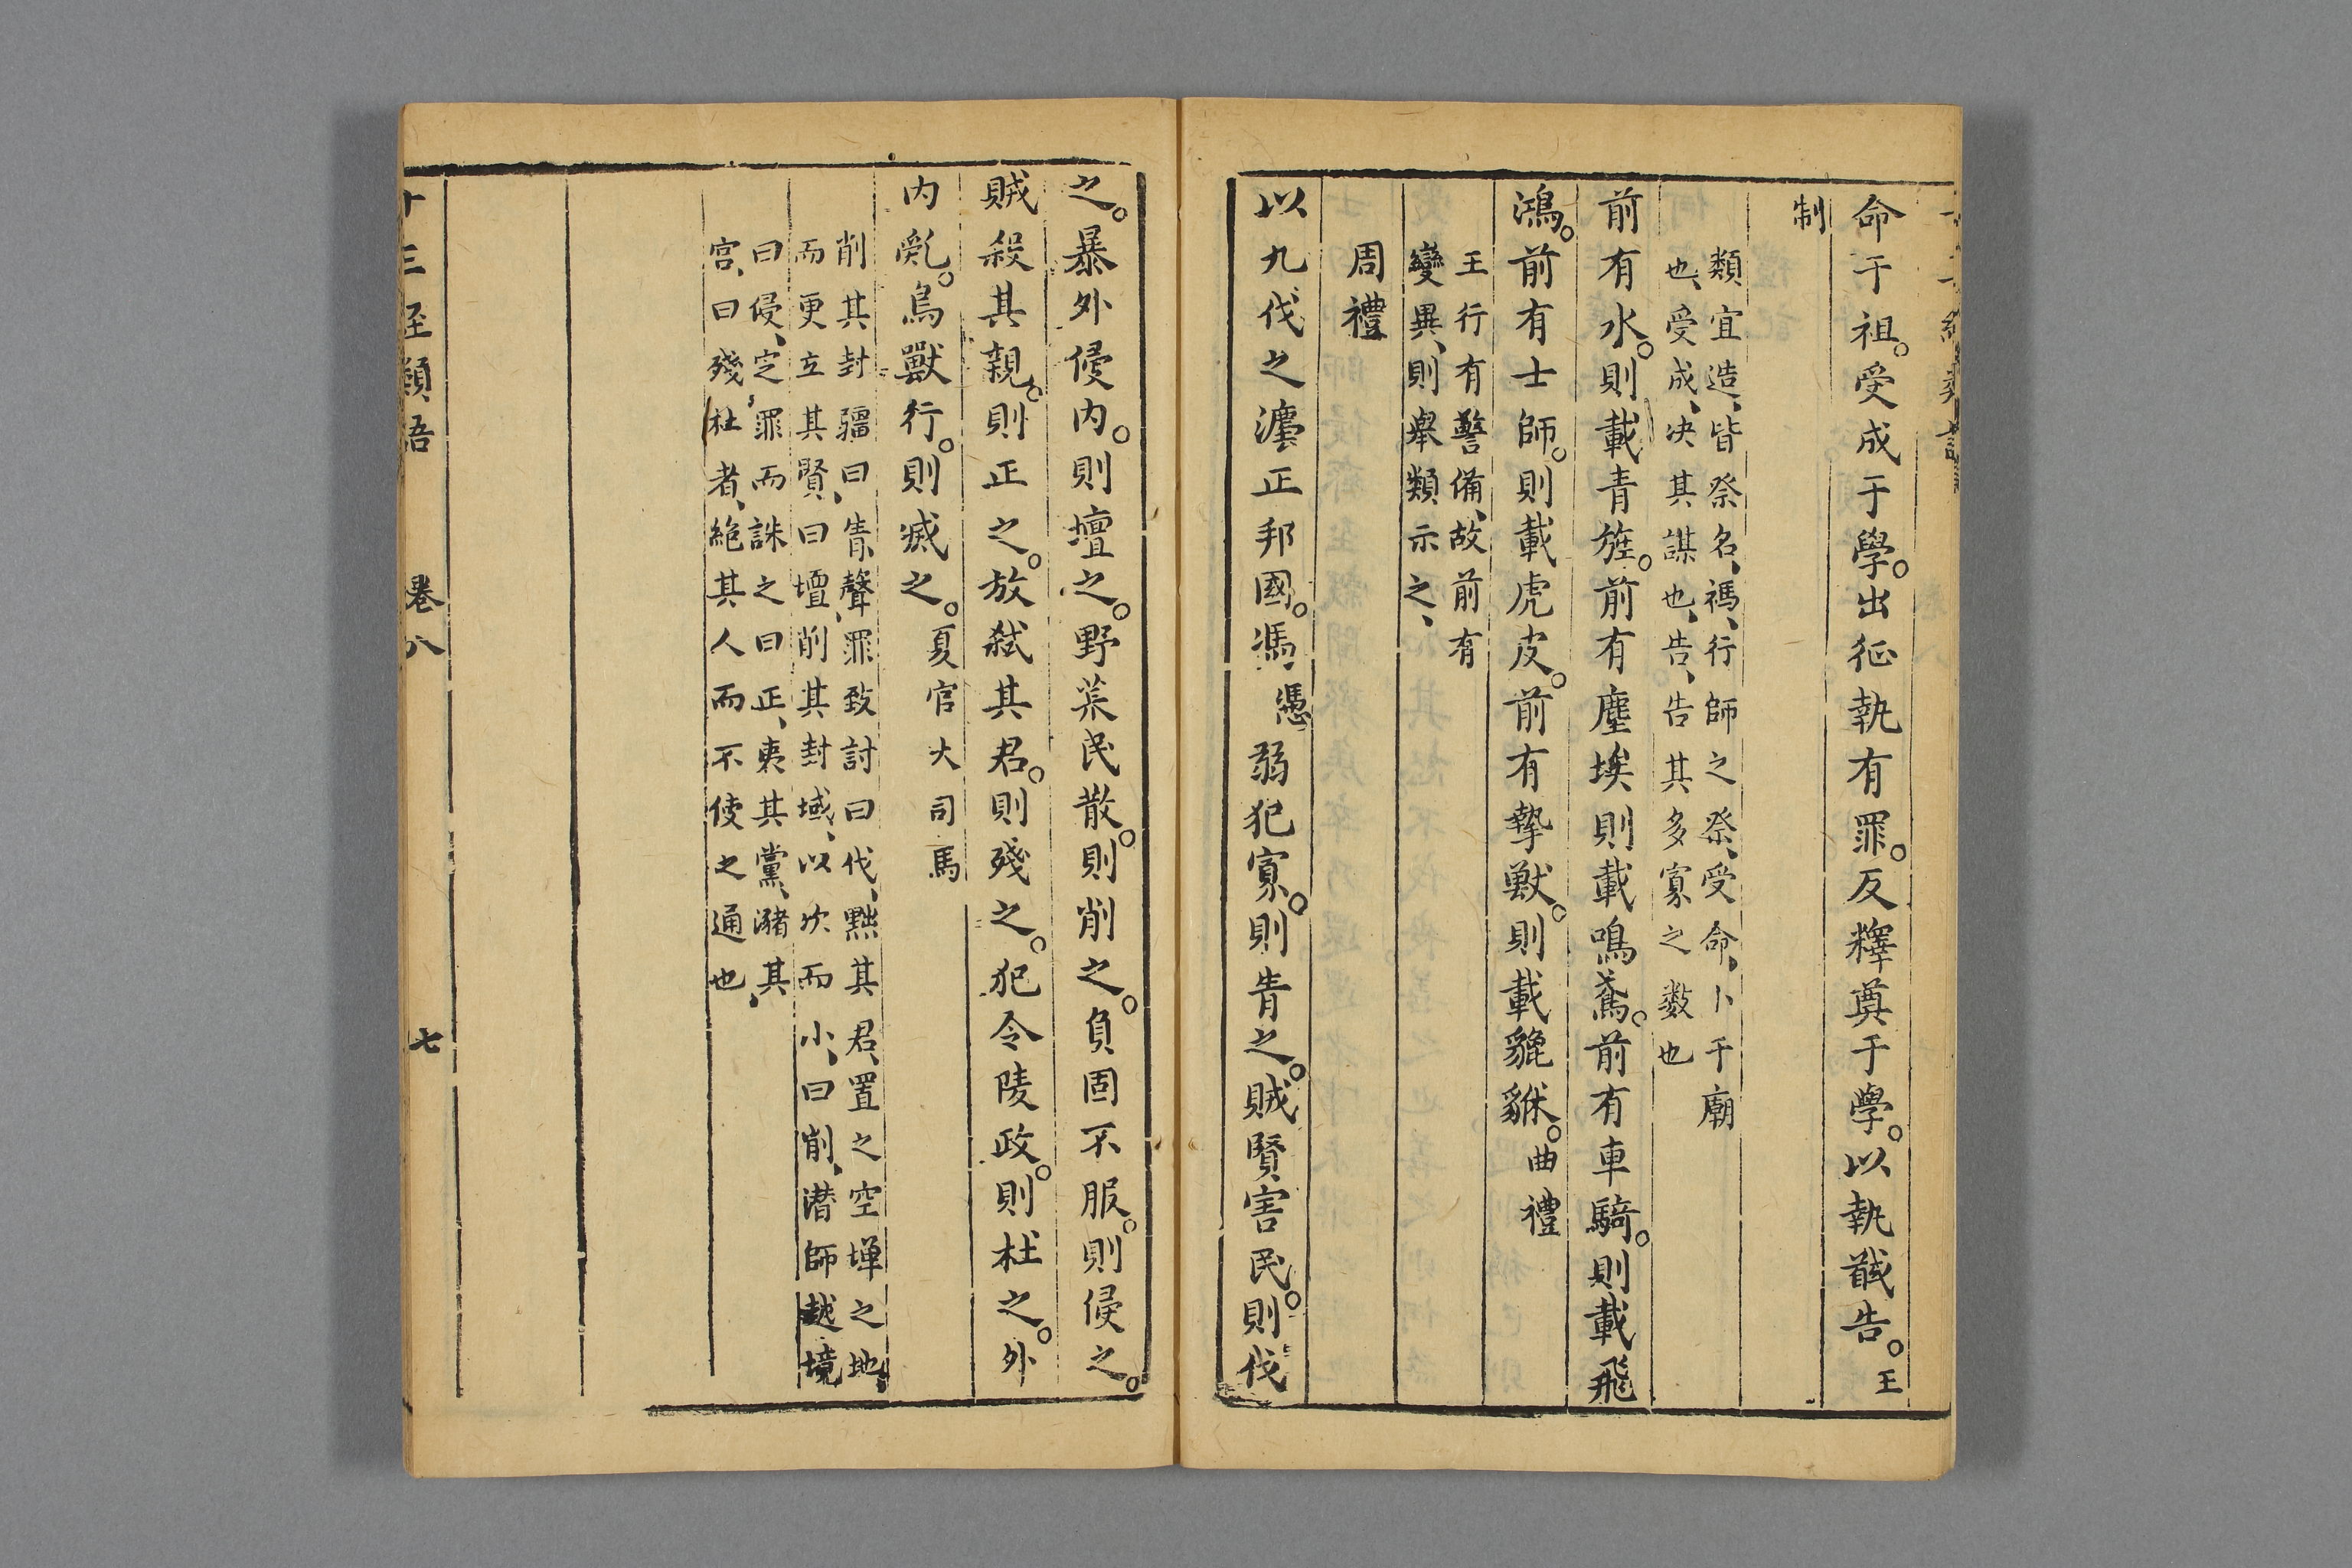 命于祖。受成于學。出征執有罪。反釋奠于學。以執馘告。王
制
類宜造、皆祭名、禡、行師之祭、受命、卜于廟
也、受成、决其謀也、告、告其多寡之數也
前有水。則載青旌。前有塵埃則載鳴鳶。前有車騎。則載飛
鴻。前有士師。則載虎皮。前有摯獸。則載貔貅。曲禮
王行有警備、故前有
變異、則舉類示之、
周禮
以九伐之灋正邦國。馮憑弱犯寡。則眚之。賊賢害民。則伐
之。暴外侵内。則壇之。野荒民散。則削之。負固不服。則侵之。
賊殺其親。則正之。放弑其君。則殘之。犯令陵政。則杜之。外
内亂。鳥獸行。則滅之。夏官大司馬
削其封疆曰、眚、聲罪致討曰伐、黜其君、置之空墠之地、
而更立其賢、曰壇、削其封域、以次而小、曰削、潜師越境
曰侵、定罪而誅之曰正、夷其黨、瀦其
宮、曰殘、杜者、絶其人而不使之通也、
十三經類語 卷八 七